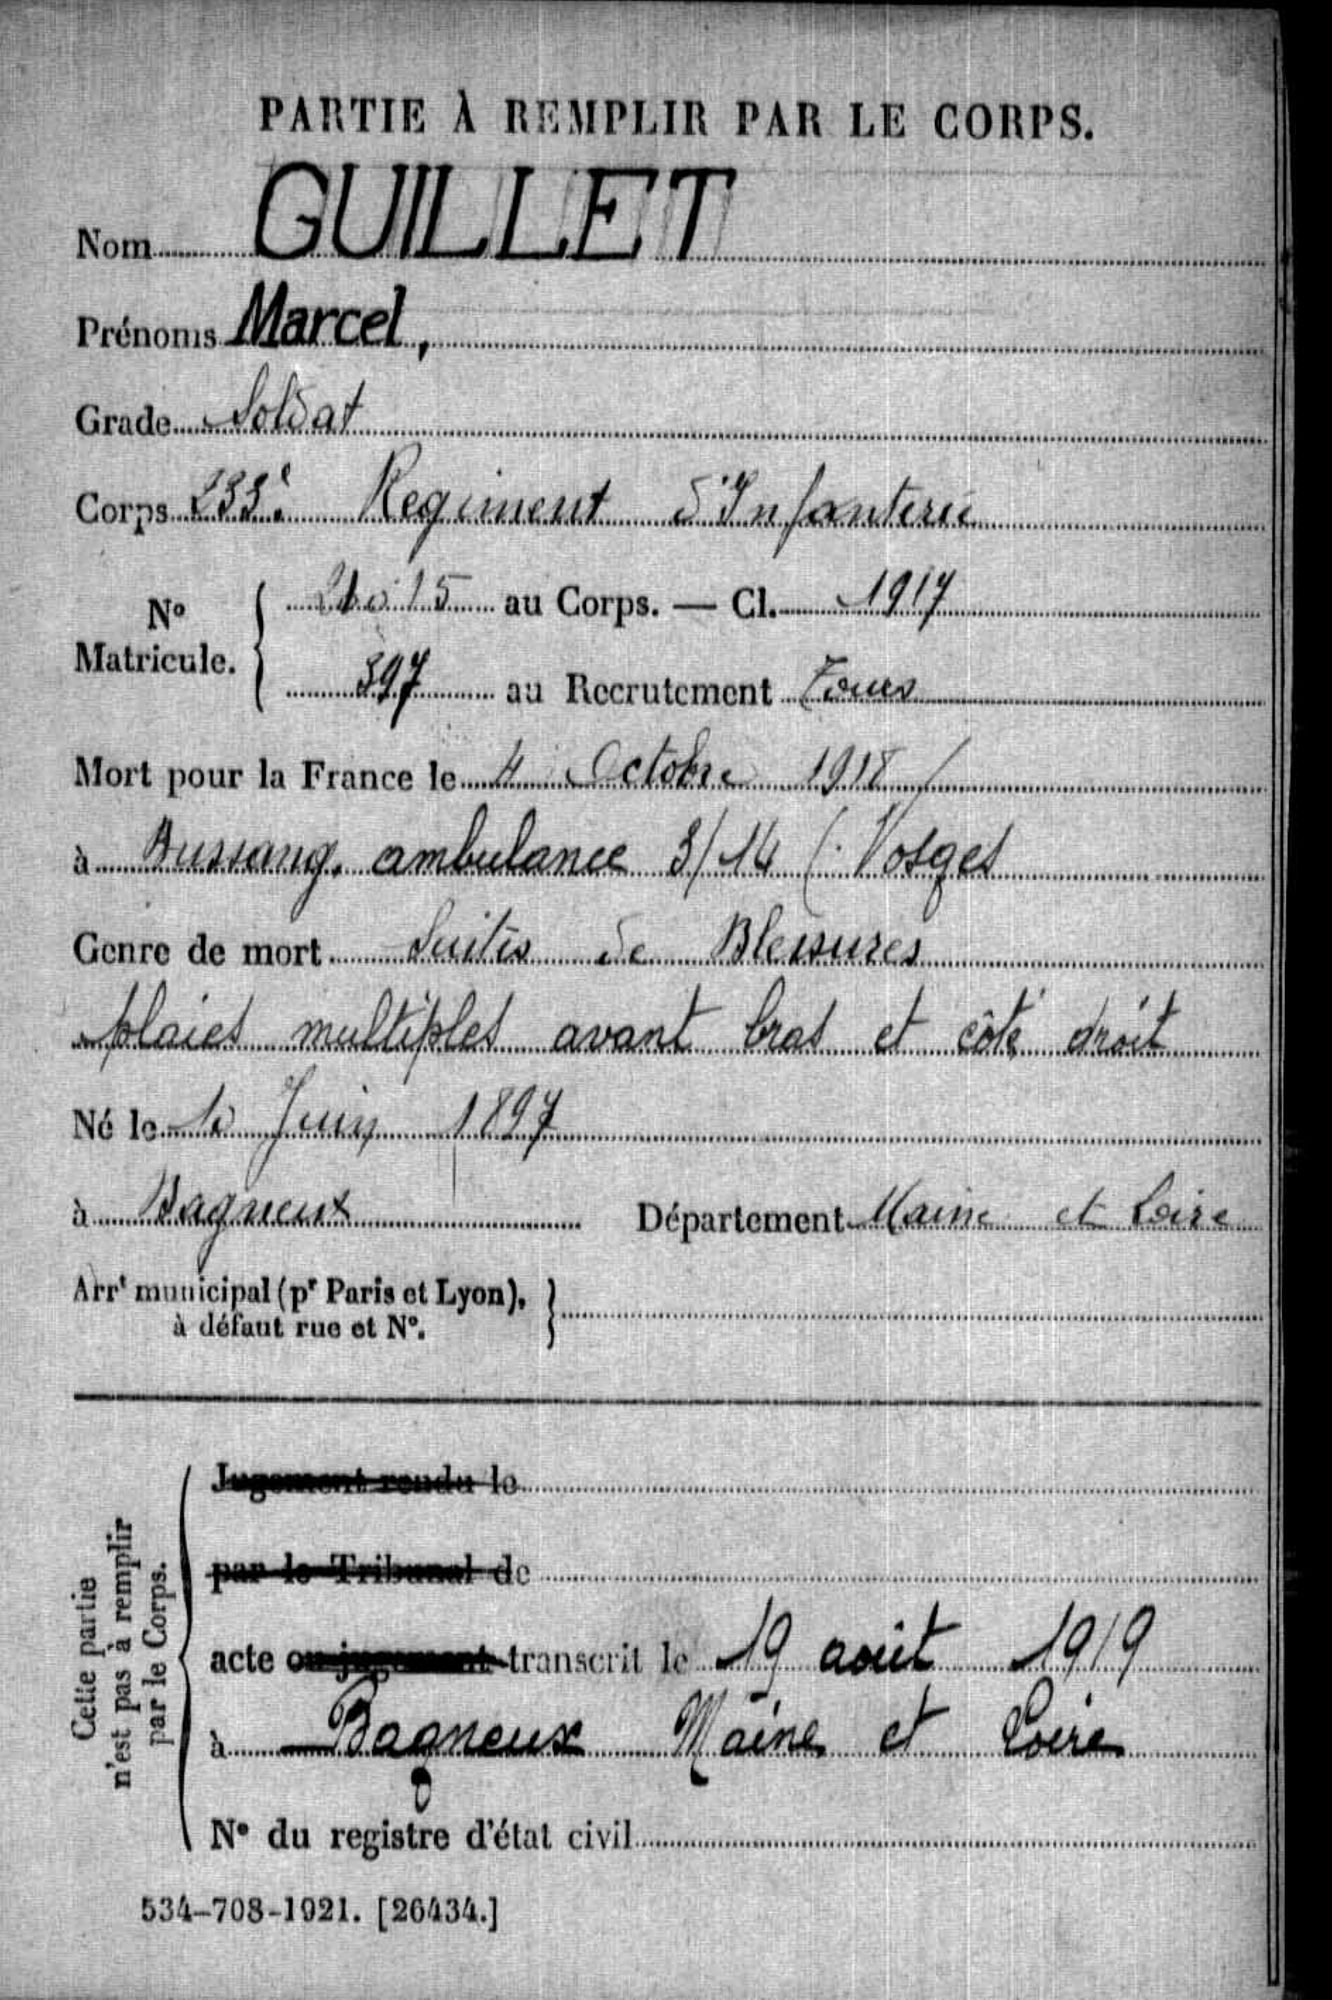 PARTIE À REMPLIR PAR LE CORPS.
Nom GUILLET
Prénoms Marcel,
Grade Soldat
Corps 233e Regiment d'Infanterie
N° Matricule. au Corps. — Cl. 1917
397 au Recrutement Tours
Mort pour la France le 4 Octobre 1918
à Bussang. ambulance 3/14 (Vosges
Genre de mort Suites de Blessures
plaies multiples avant bras et côté droit
Né le 10 Juin 1897
à Bagneux Département Maine et Loire
Arrt municipal (pr Paris et Lyon),
à défaut rue et N°.
Cette partie
n'est pas à remplir
par le Corps.
Jugement rendu le
par le Tribunal de
acte ou jugement transcrit le 19 août 1919
à Bagneux Maine et Loire
N° du registre d'état civil
534-708-1921. [26434.]